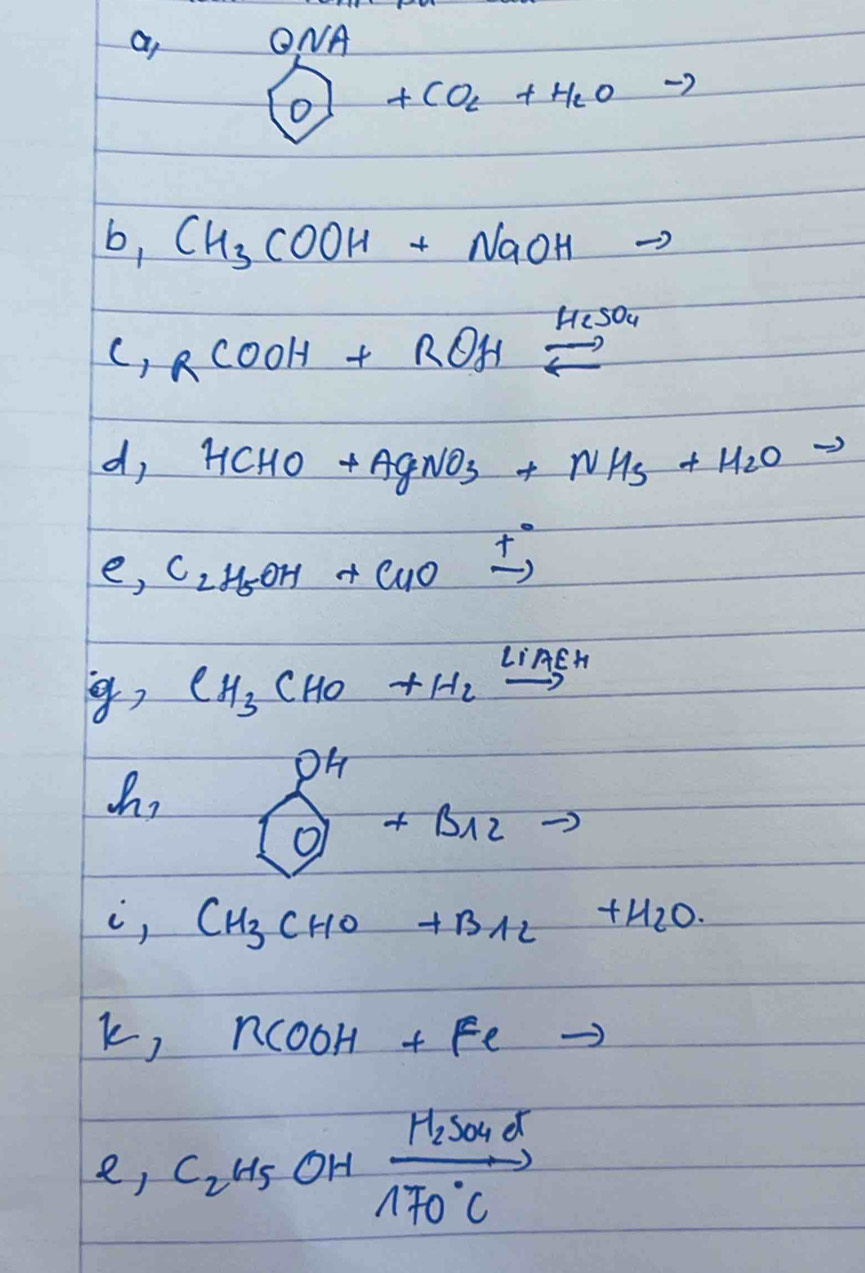 a, ONA
+ CO2 + H2O →
b, CH3COOH + NaOH →
c, RCOOH + ROH ⇌ H2SO4
d, HCHO + AgNO3 + NH3 + H2O →
e, C2H5OH + CuO t° →
g, CH3CHO + H2 LiAEH →
h, OH
+ Br2 →
i, CH3CHO + Br2 + H2O.
k, RCOOH + Fe →
l, C2H5OH H2SO4 đ → 170°C